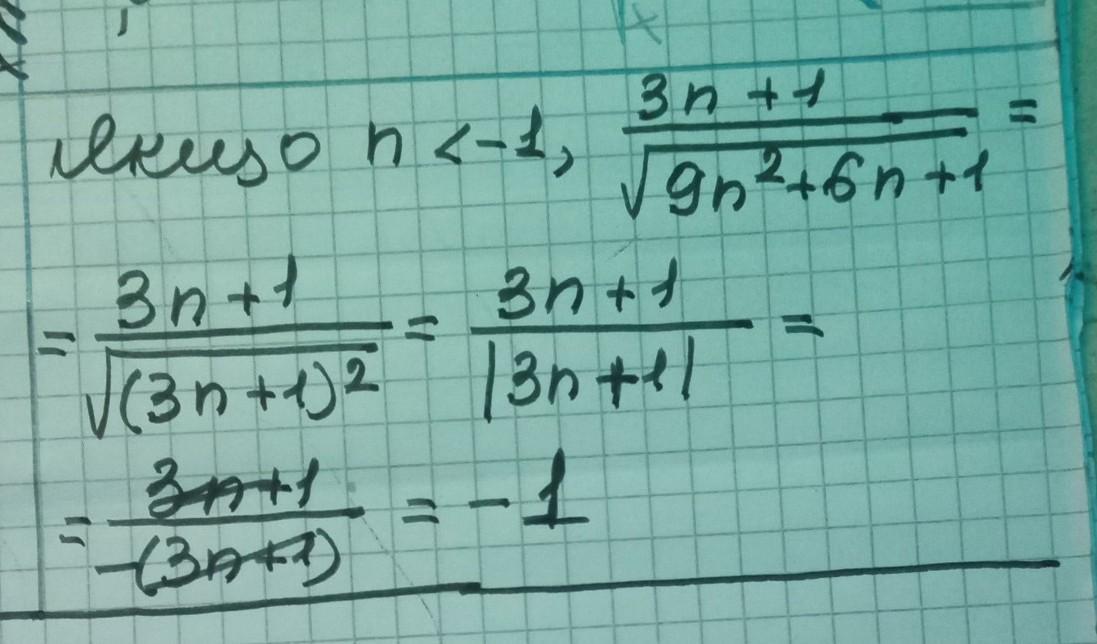 Якщо n < -1, \frac{3n + 1}{\sqrt{9n^2 + 6n + 1}} =
= \frac{3n + 1}{\sqrt{(3n + 1)^2}} = \frac{3n + 1}{|3n + 1|} =
= \frac{3n + 1}{-(3n + 1)} = -1